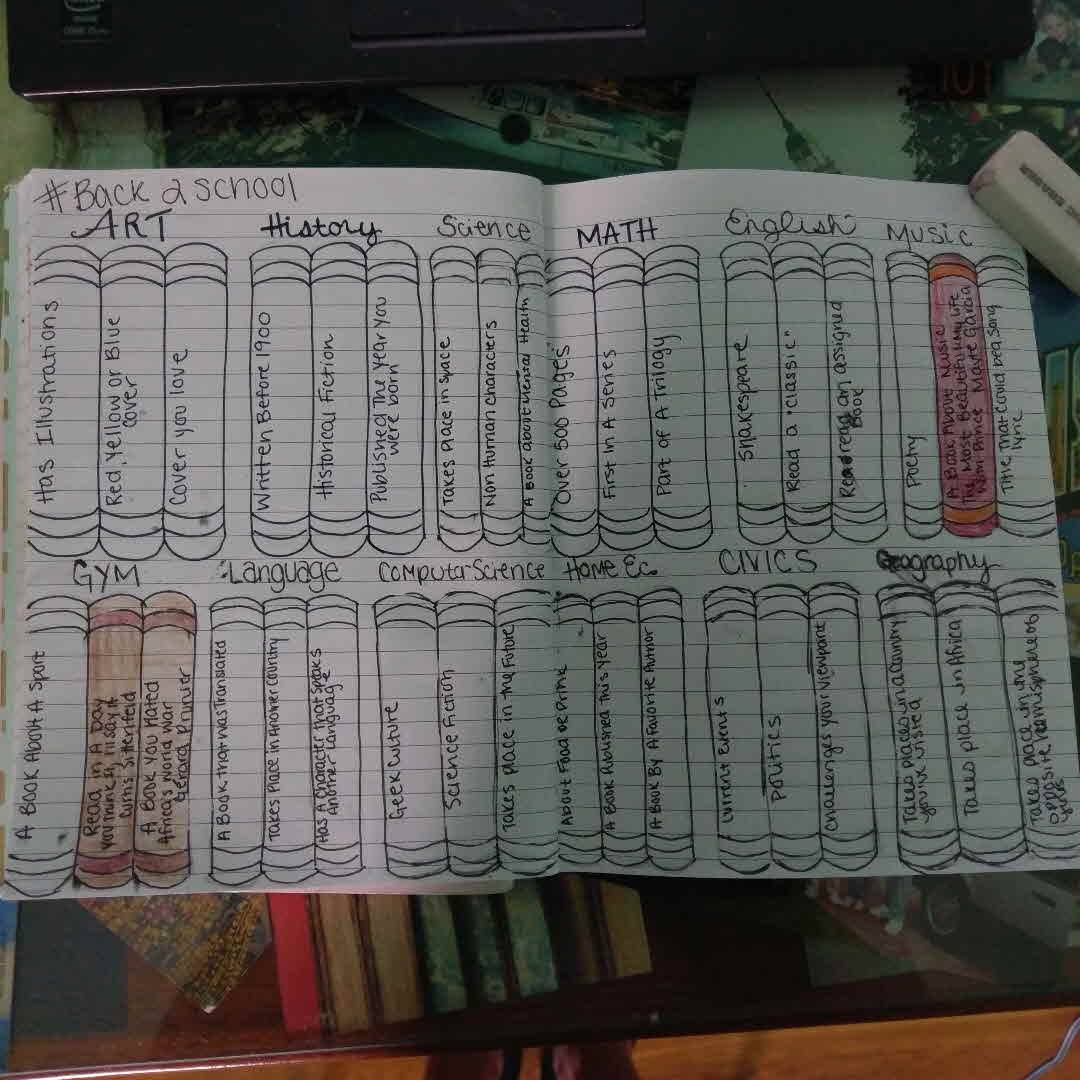 #Back 2 School
ART
History
Science
MATH
English
Music
Has Illustrations
Red, Yellow or Blue
Cover
Cover you love
Written Before 1900
Historical Fiction
Published The Year You
were born
Takes Place in Space
Non Human characters
A Book about Mental Health
Over 500 Pages
First In A Series
Part of A Trilogy
Shakespeare
Read a "Classic"
Reread an assigned
Book
Poetry
A Book About Music
The Most Beautiful: My Life
With Prince Mayte Garcia
Title that could be a song
lyric
GYM
Language
Computer Science
Home Ec.
CIVICS
Geography
A Book About A Sport
Read in A Day
You Think It, I'll Say It
Curtis Sittenfeld
A Book You Hated
Africa's World War
Gerard Prunier
A Book that was Translated
Takes Place in Another Country
Has A Character that Speaks
Another Language
Geek Culture
Science Fiction
Takes Place in the Future
About Food or Drink
A Book Published This Year
A Book By A Favorite Author
Current Events
Politics
Challenges your Viewpoint
Takes place in a Country
you've visited
Takes place in Africa
Takes place in the
opposite hemisphere of
yours